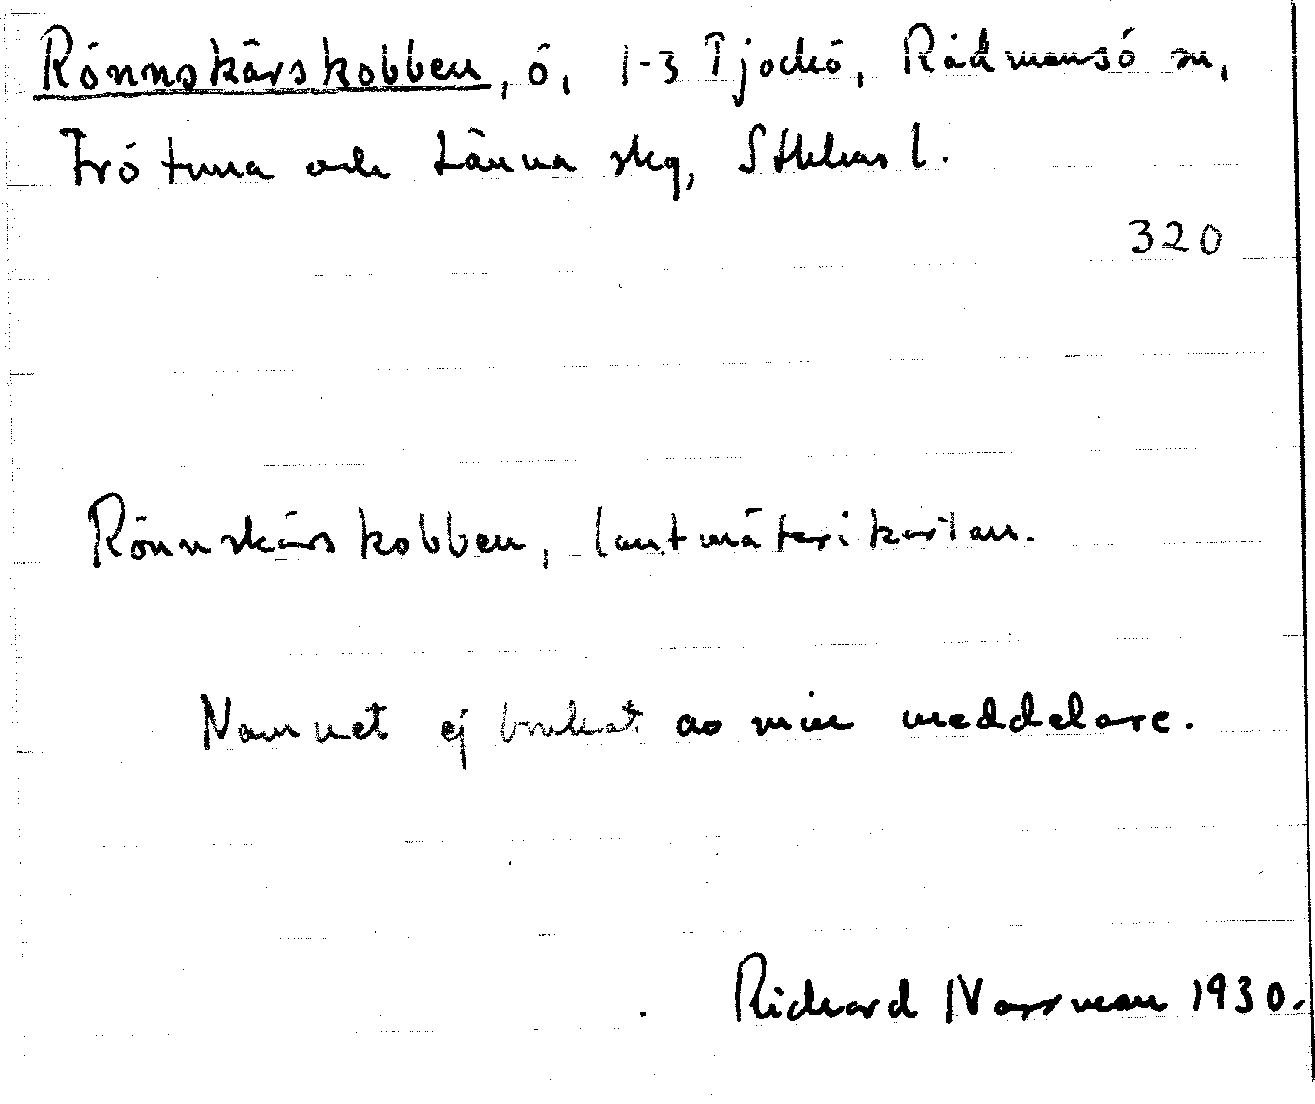 Rönnskärskobben, ö, 1-3 Tjockö, Rådmansö sn,
Frötuna och Länna skg, Sthlms l.
320
Rönnskärskobben, lantmäterikartan.
Namnet ej brukat av min meddelare.
Richard Norrman 1930.